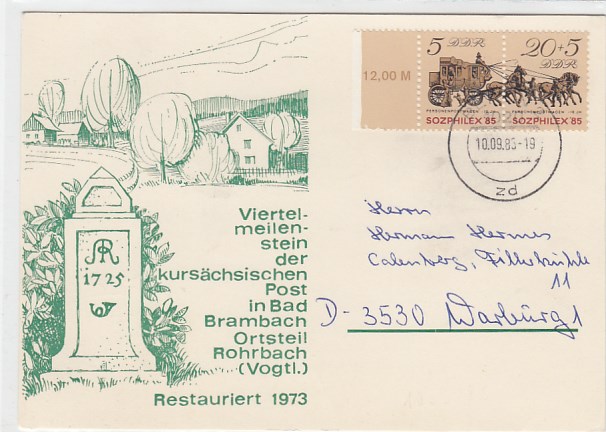 12,00 M
5 DDR
20+5
DDR
SOZPHILEX 85
SOZPHILEX 85
10.09.85-19
zd
AR
1725
Viertel-
meilen-
stein
der
kursächsischen
Post
in Bad
Brambach
Ortsteil
Rohrbach
(Vogtl.)
Restauriert 1973
Herrn
Hermann Hermes
Calenberg,
11
D-3530 Warburg 1